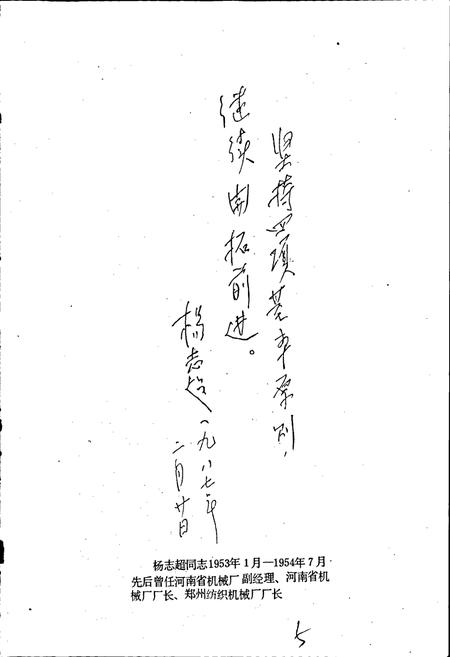 坚持四项基本原则，
继续开拓前进。
杨志超
一九八七年
二月廿日
杨志超同志1953年1月—1954年7月
先后曾任河南省机械厂副经理、河南省机
械厂厂长、郑州纺织机械厂厂长
5